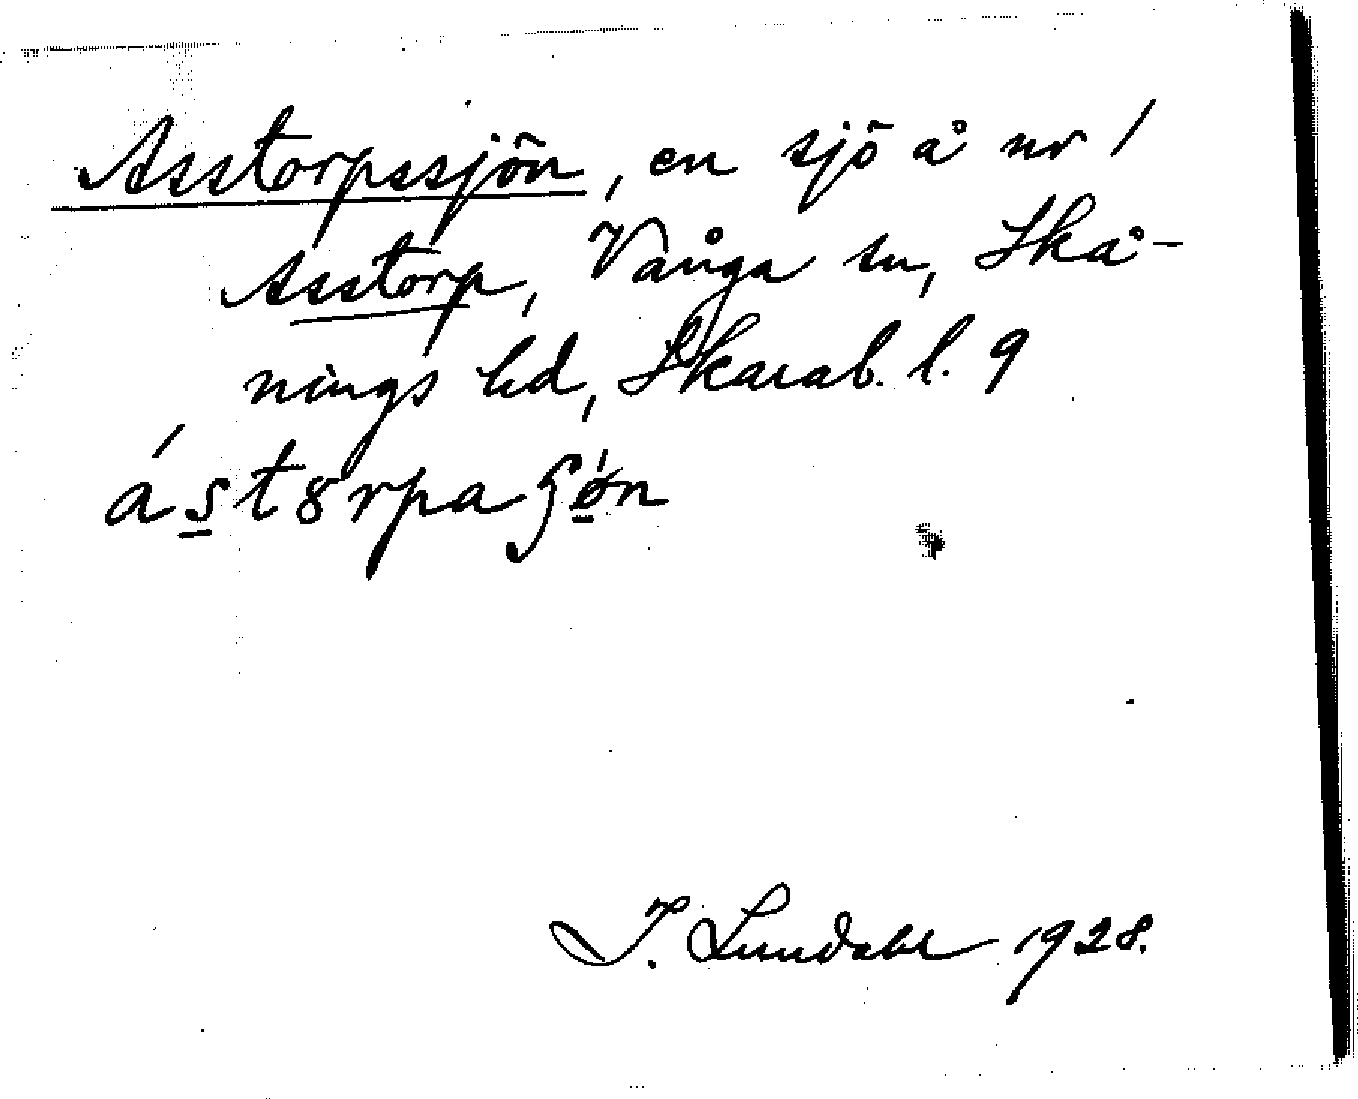 Asstorpssjön, en sjö å nr 1
Asstorp, Vånga sn, Skå-
nings hd, Skarab. l. 9
á s̲ t 8 r p a ʃ ǿ̲ n
I. Lundahl 1928.